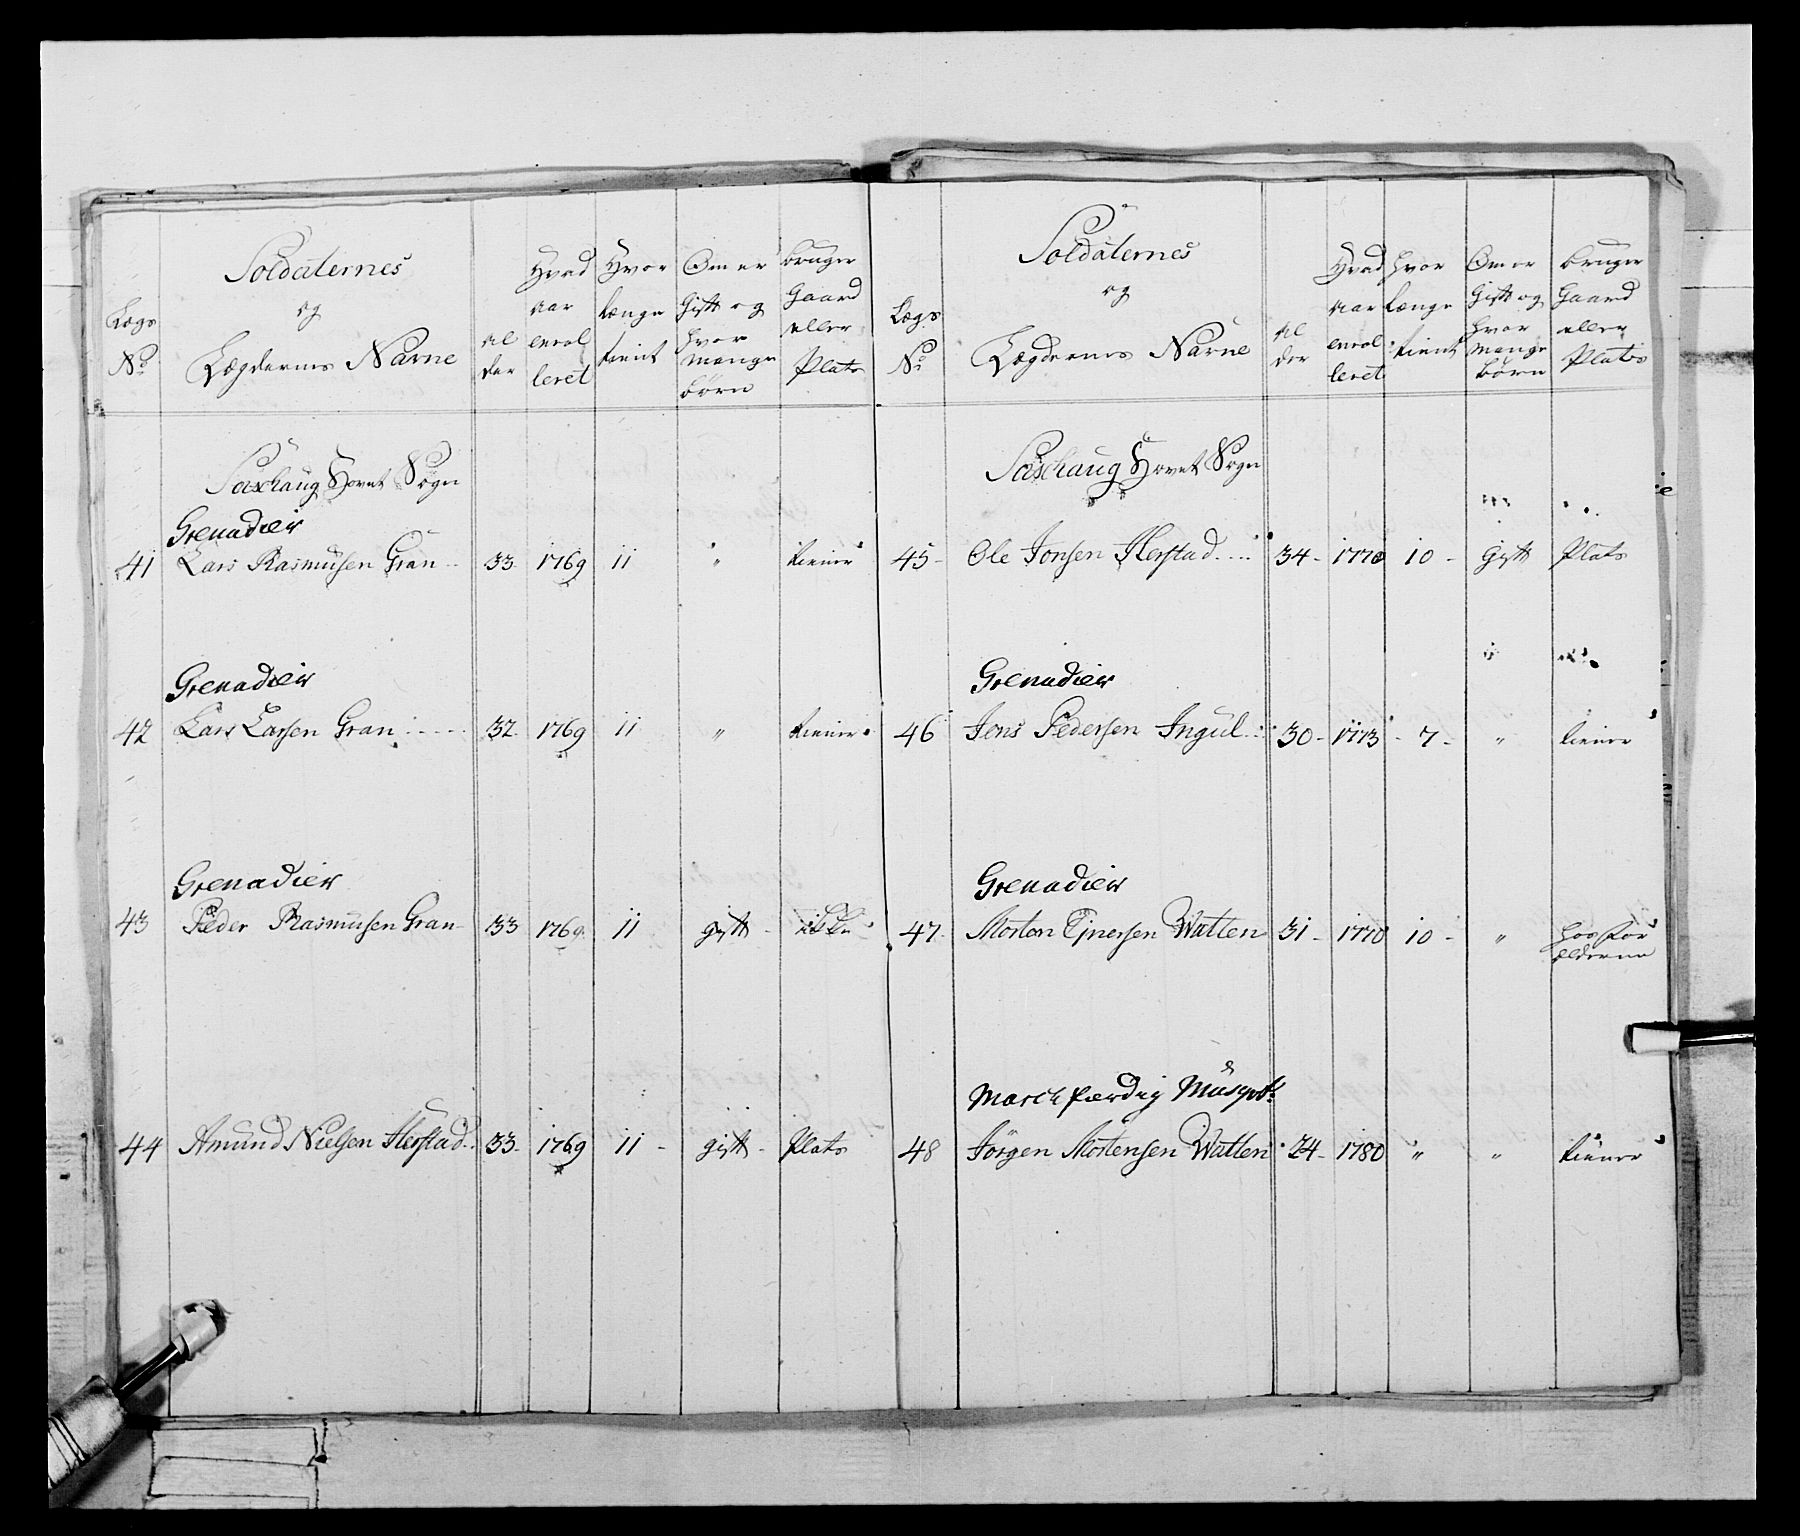 Lægs
No
Soldaternes
og
Lægdernes Nafne
al
der
Hvad
aar
enrol
leret
Hvor
længe
tient
Om er
Gift og
hvor
mange
børn
bruger
Gaard
eller
Plats
Saxhaug Hovet Sogn
Grenadier
41 Lars Rasmusen Gran 33 1769 11 " tiener
Grenadier
42 Lars Larsen Gran 32 1769 11 " tiener
Grenadier
43 Peder Rasmusen Gran 33 1769 11 gift
44 Amund Nielsen Herstad 33 1769 11 - gift - Plats
Lægs
No
Soldaternes
og
Lægdernes Nafne
al
der
Hvad
aar
enrol
leret
hvor
længe
tient
Om er
Gift og
hvor
mange
børn
bruger
Gaard
eller
Plats
Saxhaug Hovet Sogn
45 - Ole Jonsen Herstad 34 - 1770 10 - Gift Plats
Grenadier
46 Jens Pedersen Ingul 30 - 1773 - 7 - " tiener
Grenadier
47 Morten Ejnersen Watten 31 - 1770 10 - " hos For
ælderne
March færdig Musqvt:
48 Jörgen Mortensen Watten 24 - 1780 " " tiener